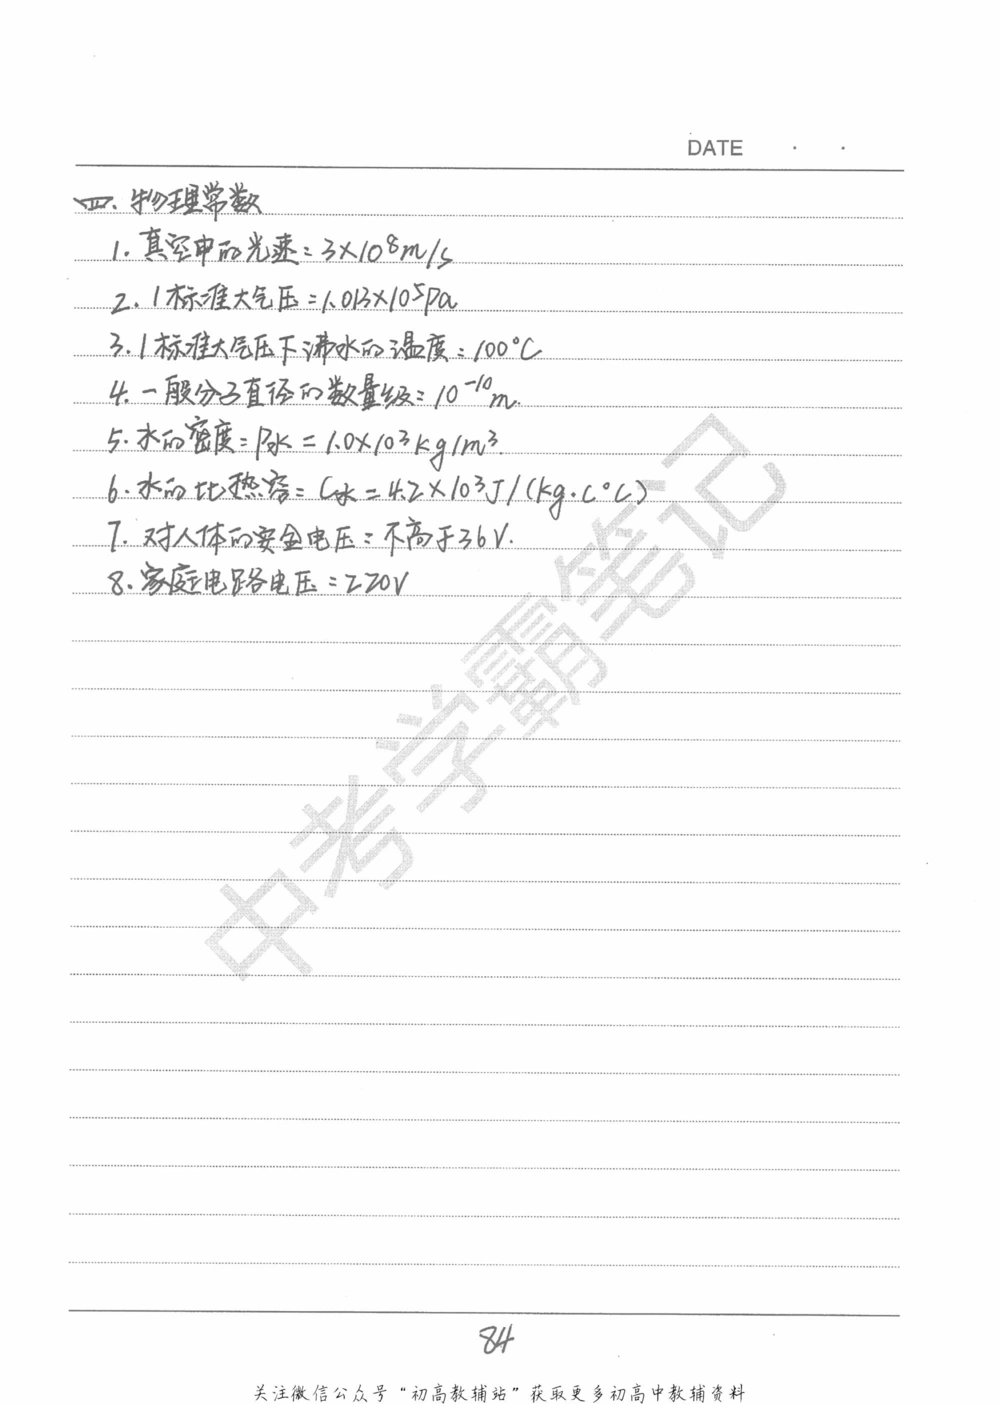 DATE · ·
四. 物理常数
1. 真空中的光速：3×10⁸m/s
2. 1标准大气压：1.013×10⁵Pa
3. 1标准大气压下沸水的温度：100°C
4. 一般分子直径的数量级：10⁻¹⁰m.
5. 水的密度：ρ水=1.0×10³kg/m³.
6. 水的比热容：C水=4.2×10³J/(kg·C°C)
7. 对人体的安全电压：不高于36V.
8. 家庭电路电压：220V
中考学霸笔记
84
关注微信公众号“初高教辅站”获取更多初高中教辅资料